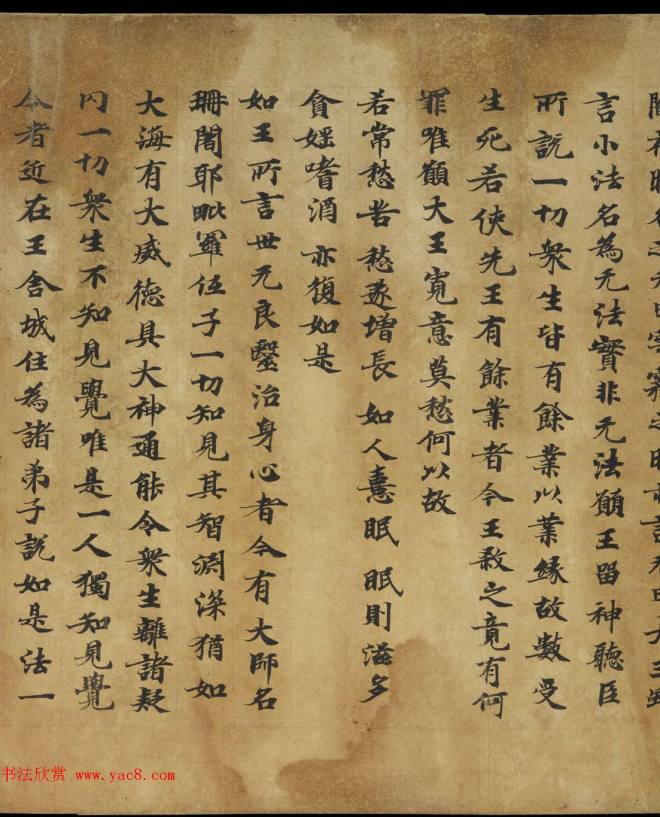 言小法名為无法實非无法願王留神聽臣
所説一切衆生皆有餘業以業緣故數受
生死若使先王有餘業者今王煞之竟有何
罪唯願大王寬意莫愁何以故
若常愁苦 愁遂增長 如人憙眠 眠則滋多
貪婬嗜酒 亦復如是
如王所言世无良毉治身心者今有大師名
珊闍耶毗羅伍子一切知見其智渕深猶如
大海有大威德具大神通能令衆生離諸疑
内一切衆生不知見覺唯是一人獨知見覺
今者近在王舍城住為諸弟子説如是法一
书法欣赏 www.yac8.com